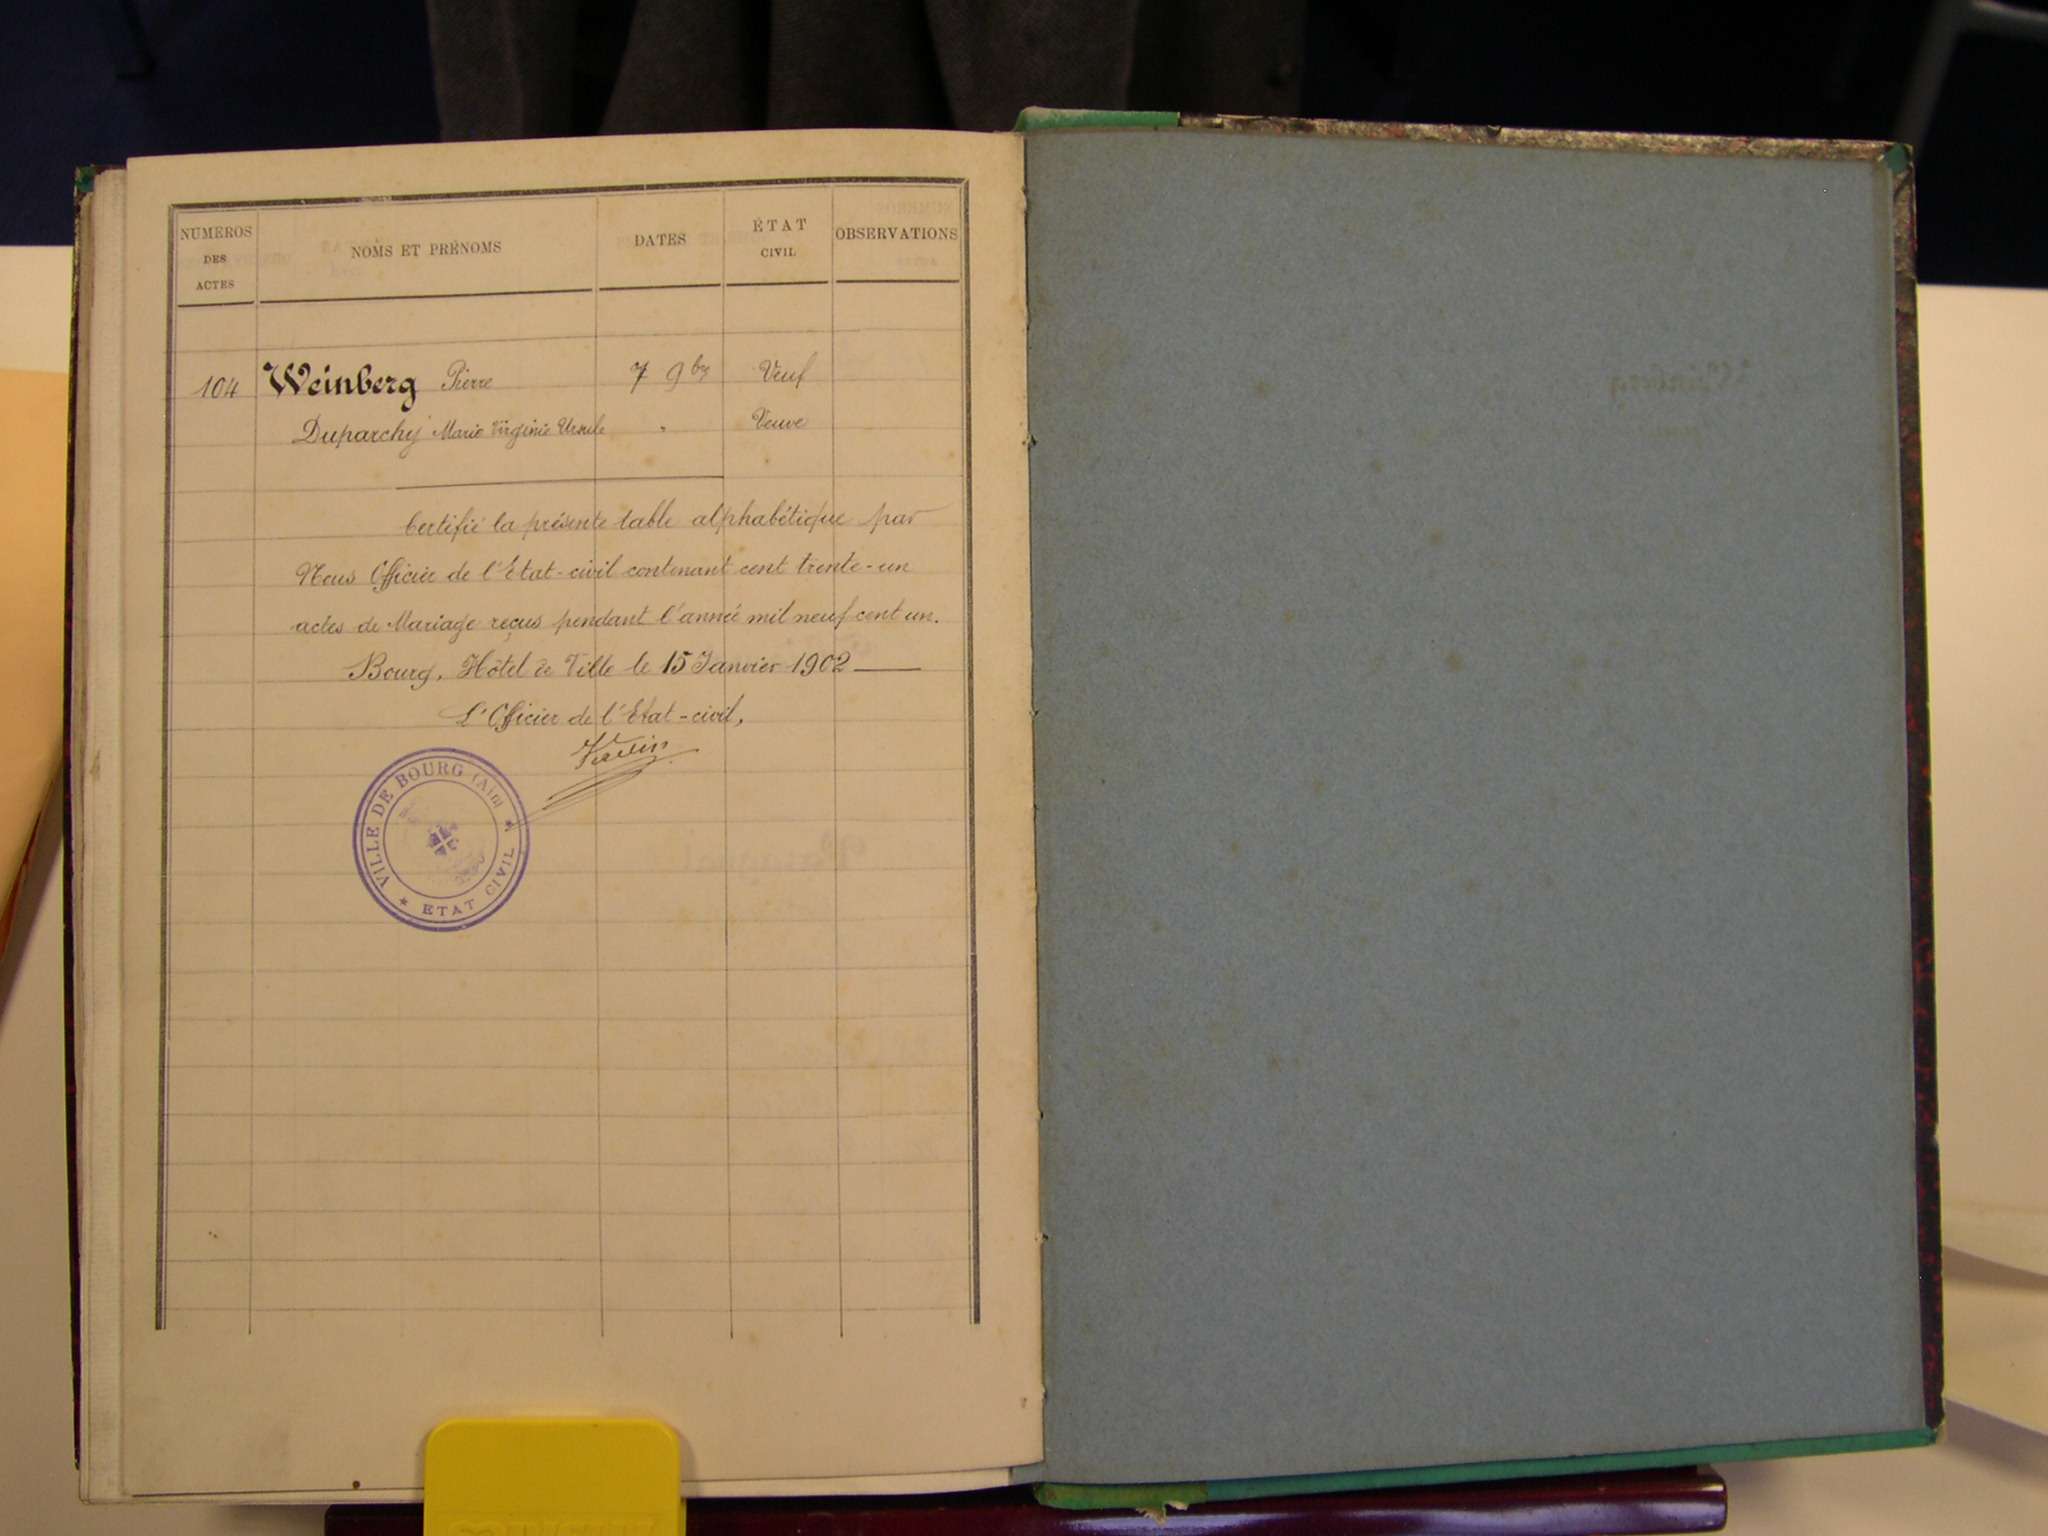 NUMÉROS DES ACTES
NOMS ET PRÉNOMS
DATES
ÉTAT CIVIL
OBSERVATIONS
104 Weinberg Pierre 7 9bre Veuf
Duparchy Marie Virginie Ursule " Veuve
Certifié la présente table alphabétique par
Nous Officier de l'Etat-civil contenant cent trente-un
actes de Mariage reçus pendant l'année mil neuf cent un.
Bourg, Hôtel de Ville le 15 Janvier 1902
L'Officier de l'Etat-civil,
VILLE DE BOURG (Ain)
★ ETAT CIVIL ★